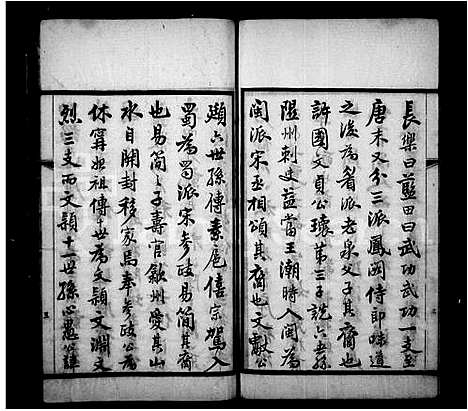 長樂曰藍田曰武功武功一支至
唐末又分三派鳳閣侍郎味道
之後為眉派老泉父子其裔也
許國文貞公瓌第三子詵六世孫
隰州刺史益當王潮時入閩為
閩派宋丞相頌其裔也文獻公
頲六世孫傳素扈僖宗駕入
蜀為蜀派宋參政易簡其裔
也易簡之子壽官歙州愛其山
水自開封移家焉奉參政公為
休寧始祖傳十世為文穎文淵文
烈三支而文穎十一世孫心愚諱